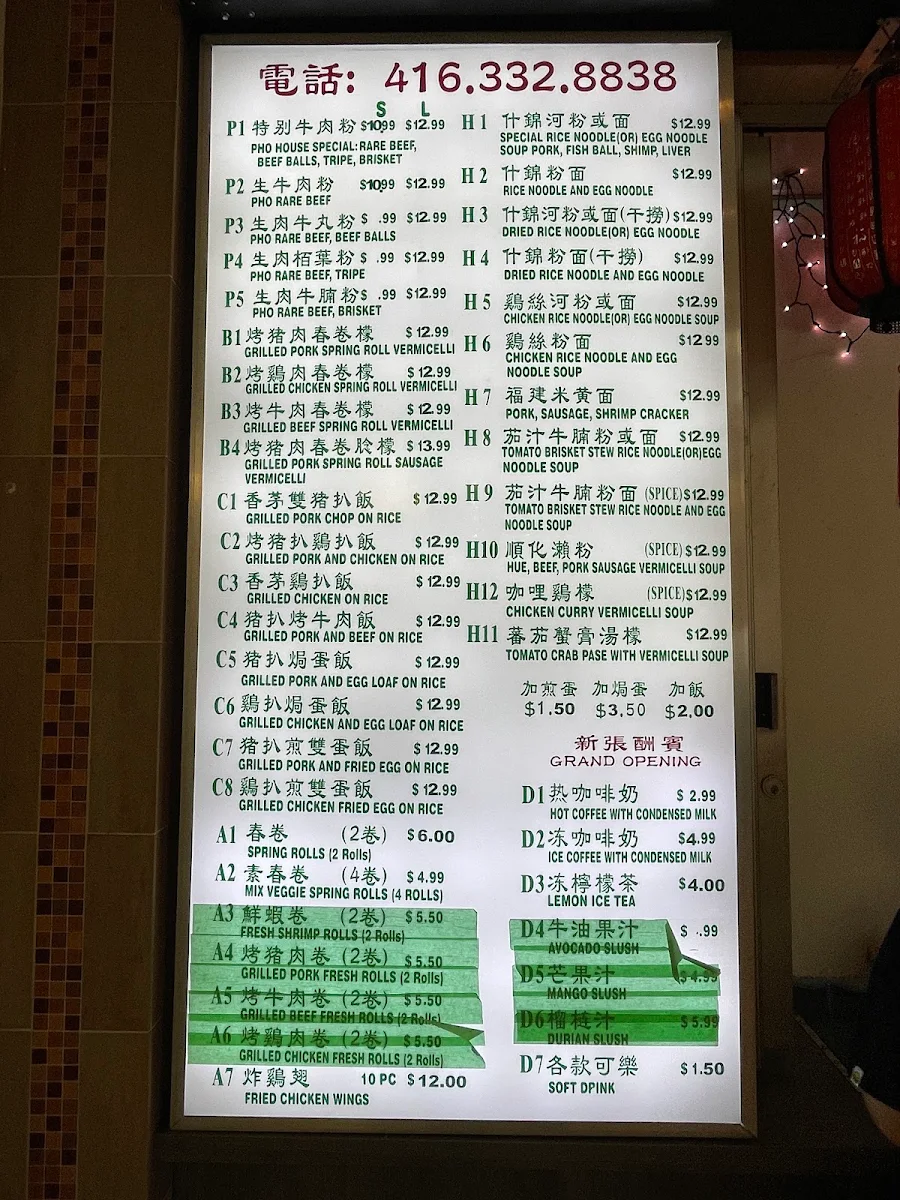 電話: 416.332.8838
S L
P1 特别牛肉粉 $10.99 $12.99
PHO HOUSE SPECIAL: RARE BEEF,
BEEF BALLS, TRIPE, BRISKET
P2 生牛肉粉 $10.99 $12.99
PHO RARE BEEF
P3 生肉牛丸粉 $ .99 $12.99
PHO RARE BEEF, BEEF BALLS
P4 生肉栢葉粉 $ .99 $12.99
PHO RARE BEEF, TRIPE
P5 生肉牛腩粉 $ .99 $12.99
PHO RARE BEEF, BRISKET
B1 烤猪肉春卷檬 $12.99
GRILLED PORK SPRING ROLL VERMICELLI
B2 烤鷄肉春卷檬 $12.99
GRILLED CHICKEN SPRING ROLL VERMICELLI
B3 烤牛肉春卷檬 $12.99
GRILLED BEEF SPRING ROLL VERMICELLI
B4 烤猪肉春卷朕檬 $13.99
GRILLED PORK SPRING ROLL SAUSAGE
VERMICELLI
C1 香茅雙猪扒飯 $12.99
GRILLED PORK CHOP ON RICE
C2 烤猪扒鷄扒飯 $12.99
GRILLED PORK AND CHICKEN ON RICE
C3 香茅鷄扒飯 $12.99
GRILLED CHICKEN ON RICE
C4 猪扒烤牛肉飯 $12.99
GRILLED PORK AND BEEF ON RICE
C5 猪扒焗蛋飯 $12.99
GRILLED PORK AND EGG LOAF ON RICE
C6 鷄扒焗蛋飯 $12.99
GRILLED CHICKEN AND EGG LOAF ON RICE
C7 猪扒煎雙蛋飯 $12.99
GRILLED PORK AND FRIED EGG ON RICE
C8 鷄扒煎雙蛋飯 $12.99
GRILLED CHICKEN FRIED EGG ON RICE
A1 春卷 (2卷) $6.00
SPRING ROLLS (2 Rolls)
A2 素春卷 (4卷) $4.99
MIX VEGGIE SPRING ROLLS (4 ROLLS)
A3 鮮蝦卷 (2卷) $5.50
FRESH SHRIMP ROLLS (2 Rolls)
A4 烤猪肉卷 (2卷) $5.50
GRILLED PORK FRESH ROLLS (2 Rolls)
A5 烤牛肉卷 (2卷) $5.50
GRILLED BEEF FRESH ROLLS (2 Rolls)
A6 烤鷄肉卷 (2卷) $5.50
GRILLED CHICKEN FRESH ROLLS (2 Rolls)
A7 炸鷄翅 10 PC $12.00
FRIED CHICKEN WINGS
H1 什錦河粉或面 $12.99
SPECIAL RICE NOODLE(OR) EGG NOODLE
SOUP PORK, FISH BALL, SHIMP, LIVER
H2 什錦粉面 $12.99
RICE NOODLE AND EGG NOODLE
H3 什錦河粉或面(干撈) $12.99
DRIED RICE NOODLE(OR) EGG NOODLE
H4 什錦粉面(干撈) $12.99
DRIED RICE NOODLE AND EGG NOODLE
H5 鷄絲河粉或面 $12.99
CHICKEN RICE NOODLE(OR) EGG NOODLE SOUP
H6 鷄絲粉面 $12 99
CHICKEN RICE NOODLE AND EGG
NOODLE SOUP
H7 福建米黄面 $12.99
PORK, SAUSAGE, SHRIMP CRACKER
H8 茄汁牛腩粉或面 $12.99
TOMATO BRISKET STEW RICE NOODLE(OR)EGG
NOODLE SOUP
H9 茄汁牛腩粉面 (SPICE) $12.99
TOMATO BRISKET STEW RICE NOODLE AND EGG
NOODLE SOUP
H10 順化瀨粉 (SPICE) $12.99
HUE, BEEF, PORK SAUSAGE VERMICELLI SOUP
H12 咖哩鷄檬 (SPICE) $12.99
CHICKEN CURRY VERMICELLI SOUP
H11 蕃茄蟹膏湯檬 $12.99
TOMATO CRAB PASE WITH VERMICELLI SOUP
加煎蛋 加焗蛋 加飯
$1.50 $3.50 $2.00
新張酬賓
GRAND OPENING
D1 热咖啡奶 $2.99
HOT COFFEE WITH CONDENSED MILK
D2 冻咖啡奶 $4.99
ICE COFFEE WITH CONDENSED MILK
D3 冻檸檬茶 $4.00
LEMON ICE TEA
D4 牛油果汁 $ .99
AVOCADO SLUSH
D5 芒果汁 $4.99
MANGO SLUSH
D6 榴梿汁 $5.99
DURIAN SLUSH
D7 各款可樂 $1.50
SOFT DPINK